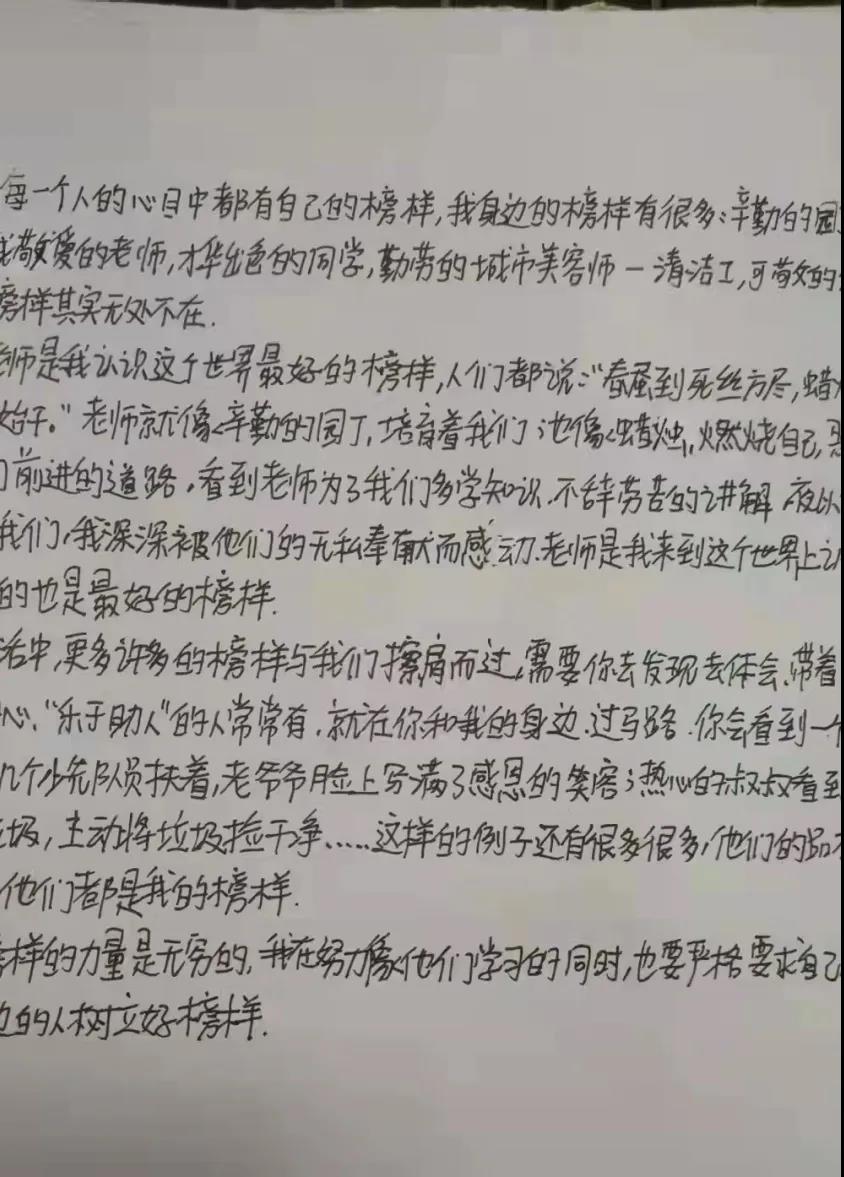 每一个人的心目中都有自己的榜样,我身边的榜样有很多:辛勤的园
我敬爱的老师,才华出色的同学,勤劳的城市美容师一清洁工,可敬的
榜样其实无处不在.
老师是我认识这个世界最好的榜样,人们都说:"春蚕到死丝方尽,蜡
始干。"老师就像辛勤的园丁,培育着我们;也像蜡烛,燃烧自己,
们前进的道路,看到老师为了我们多学知识.不辞劳苦的讲解 夜以
我们,我深深被他们的无私奉献而感动.老师是我来到这个世界上
的也是最好的榜样.
活中,更多许多的榜样与我们擦肩而过,需要你去发现去体会.带着
心、"乐于助人"的人常常有.就在你和我的身边.过马路.你会看到一个
几个少先队员扶着,老爷爷脸上写满了感恩的笑容;热心的叔叔看到
圾,主动将垃圾捡干净.....这样的例子还有很多很多,他们的品
他们都是我的榜样.
榜样的力量是无穷的,我在努力像他们学习的同时,也要严格要求自己
边的人树立好榜样.